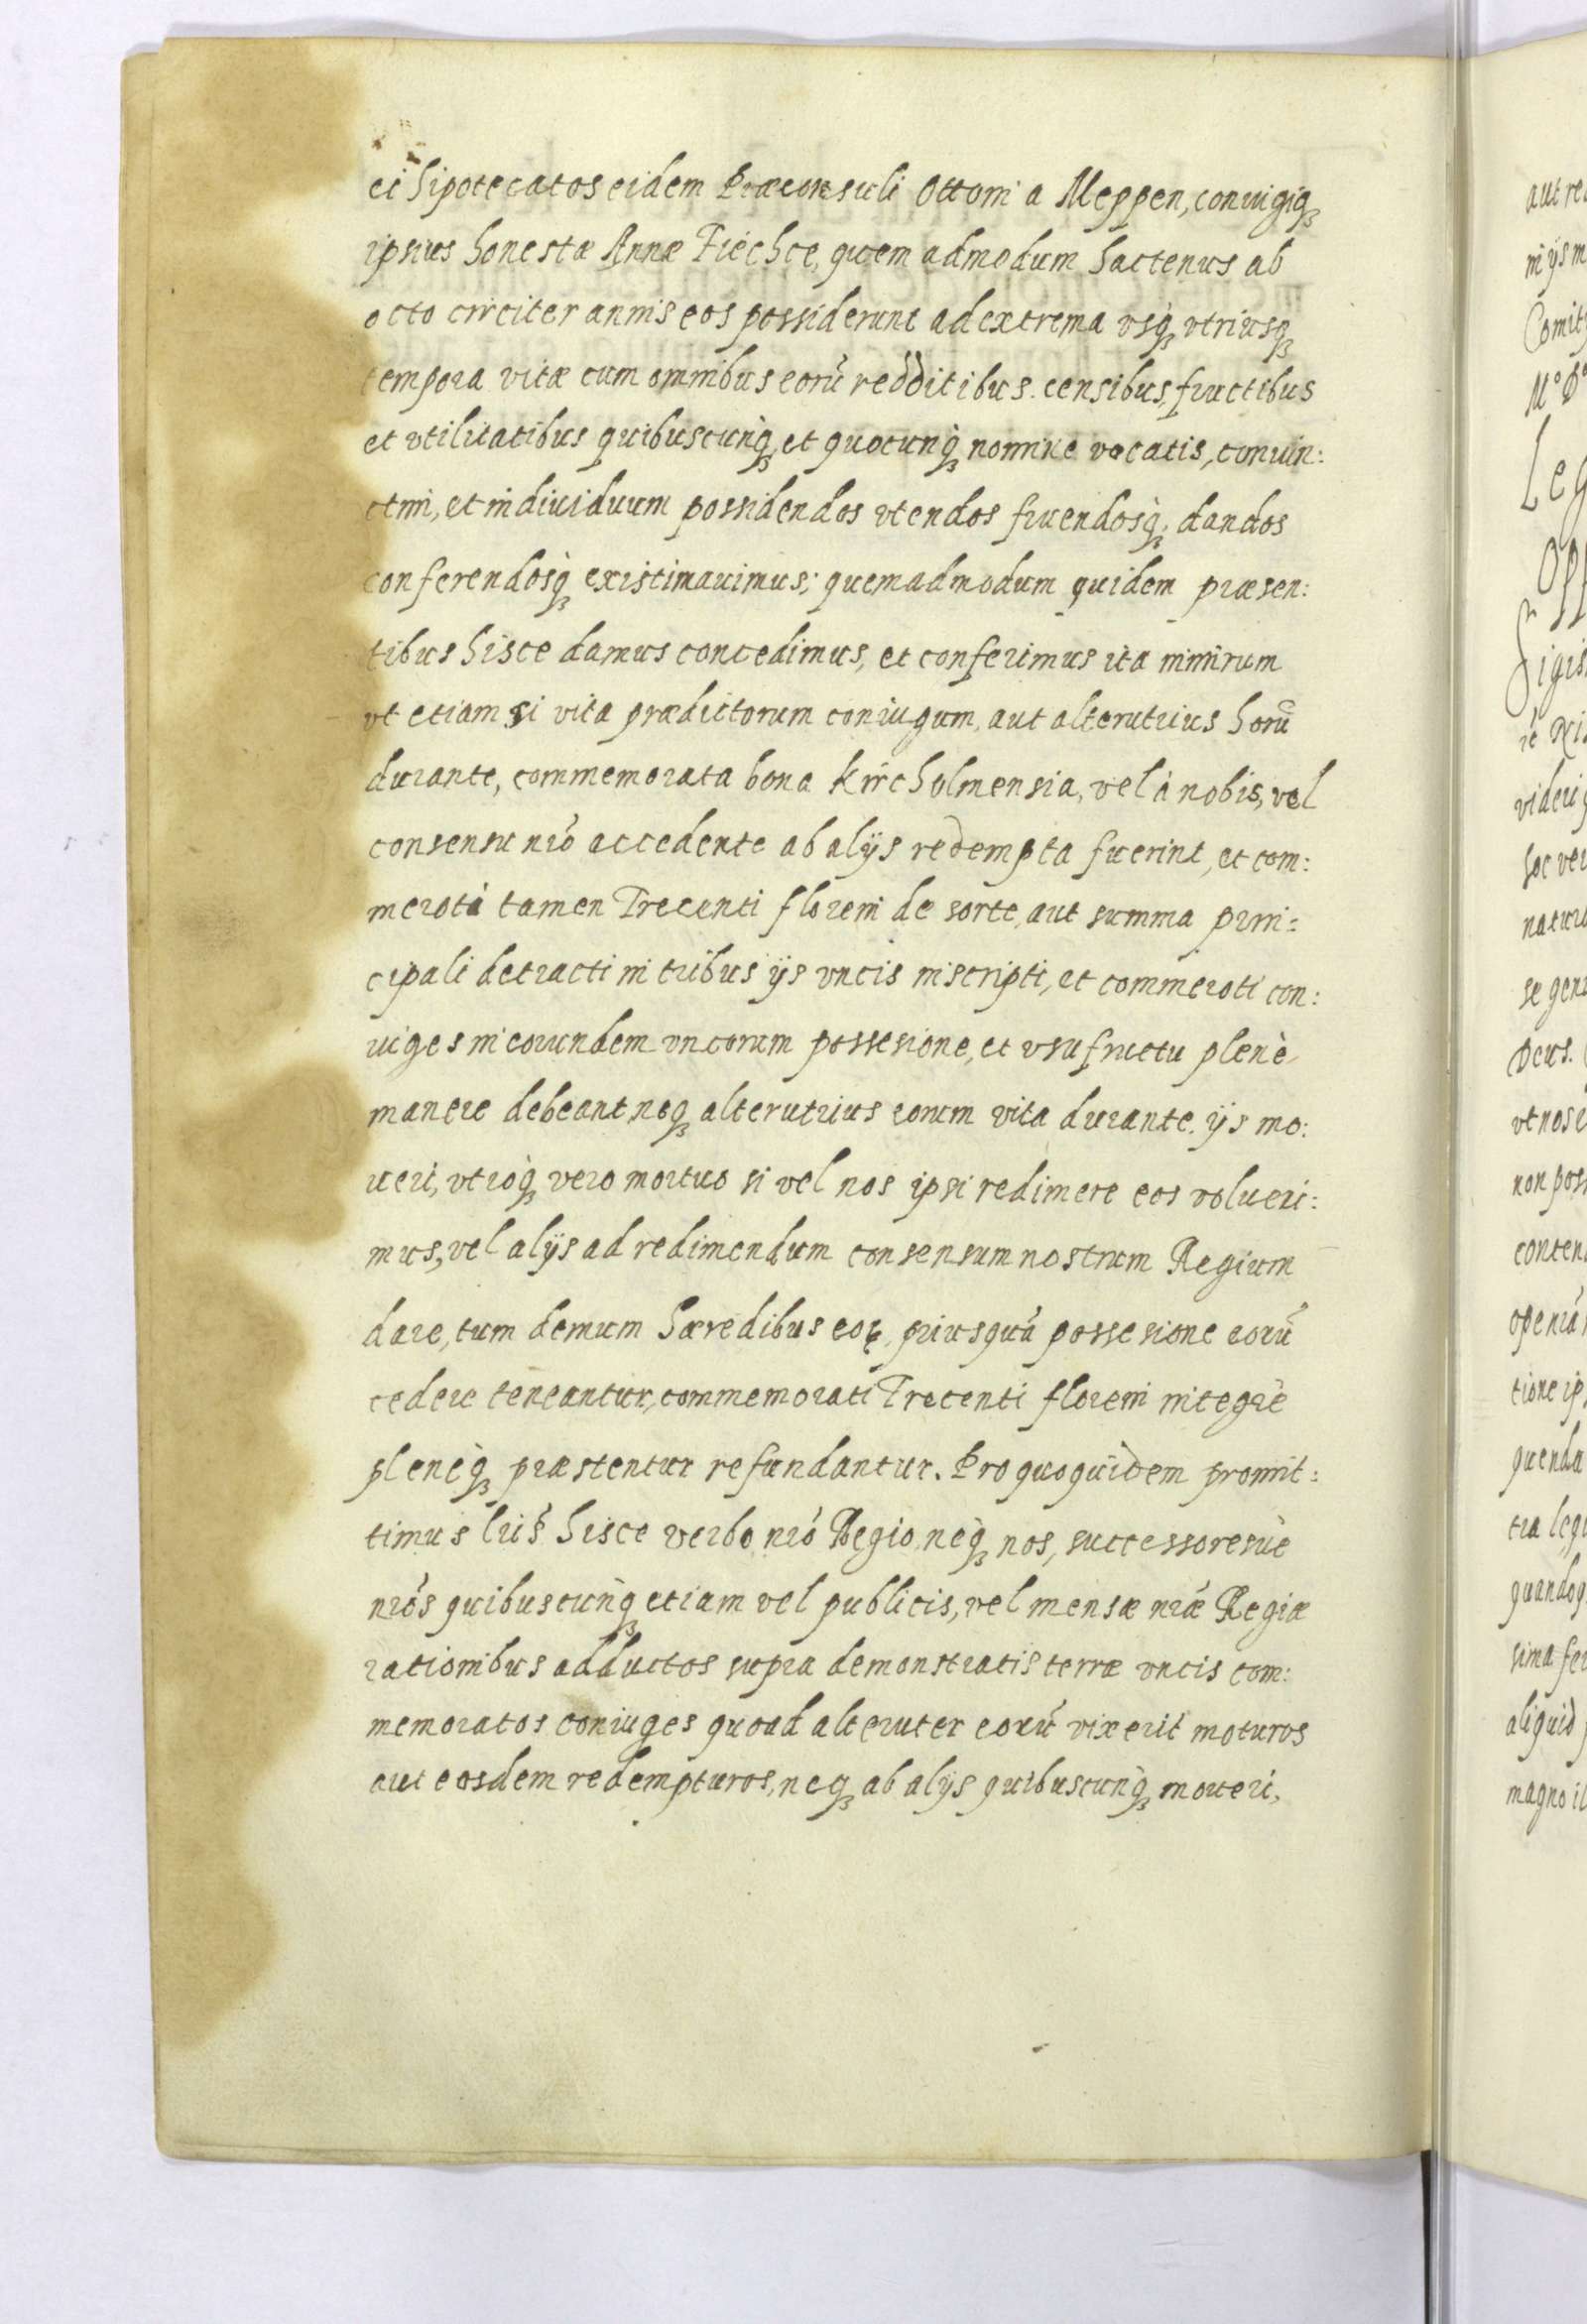 ei hipotecatos eidem Præconsuli Ottoni a Meppen, coniugiq́ꝫ
ipsius honestæ Annæ Tiéchte, quem admodum hactenus ab
octo circiter annis eos possiderunt ad extrema vsq́ꝫ vtriusq́ꝫ
tempora vitæ cum omnibus eorū redditibus censibus, fructibus
et vtilitatibus quibuscunq́ꝫ et quocunq́ꝫ nomine vocatis, coniun:
ctim, et indiuiduum possidendos vtendos fruendosq́ꝫ dandos
conferendosq́ꝫ existimauimus; quemadmodum quidem præsen:
tibus hisce damus concedimus, et conferimus ita nimirum
vt etiam si vita prædictorum coniugum, aut alterutrius horū
durante, commemorata bona Kircholmensia, vel à nobis, vel
consensu nrō accedente ab alijs redempta fuerint, et com:
merotá tamen Trecenti floreni de sorte, aut summa prin:
cipali detracti in tribus ijs vncis inscripti, et commeroti con:
iuges in eorundem vncorum possesione, et vsufructu plenè
manere debeant, neqꝫ alterutrius eorum vita durante, ijs mo:
ueri, vtroq́ꝫ vero mortuo si vel nos ipsi redimere eos volueri:
mus, vel alijs ad redimendum consensum nostrum Regium
dare, tum demum hæredibus eoꝝ, priusquā possesione eorū
cedere teneantur, commemorati Trecenti floreni integrè
plenèq́ꝫ præstentur refundantur. Pro quo quidem promit:
timus lrīs hisce verbo nrō Regio, neq́ꝫ nos, successoresuè
nrōs quibuscunq́ꝫ etiam vel publicis, vel mensæ nrǣ Regiæ
rationibus adductos supra demonstratis terræ vncis com:
memoratos coniuges quoad alteruter eorū vixerit moturos
aut eosdem redempturos, neqꝫ ab alijs quibuscunq́ꝫ moueri,